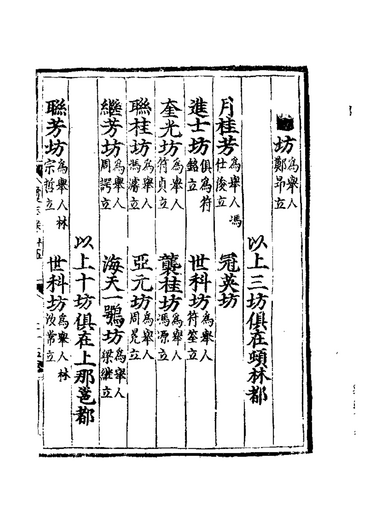 坊為舉人鄭昻立
以上三坊俱在頭林都
月桂芳為舉人馮仕俊立
冠英坊
進士坊俱為符銘立
世科坊為舉人符奎立
奎光坊為舉人符貞立
龔桂坊為舉人馮源立
聯桂坊為舉人馮潘立
亞元坊為舉人周冕立
繼芳坊為舉人周諤立
海天一鶚坊為舉人梁繼立
以上十坊俱在上那邕都
聯芳坊為舉人林宗哲立
世科坊為舉人林汝常立